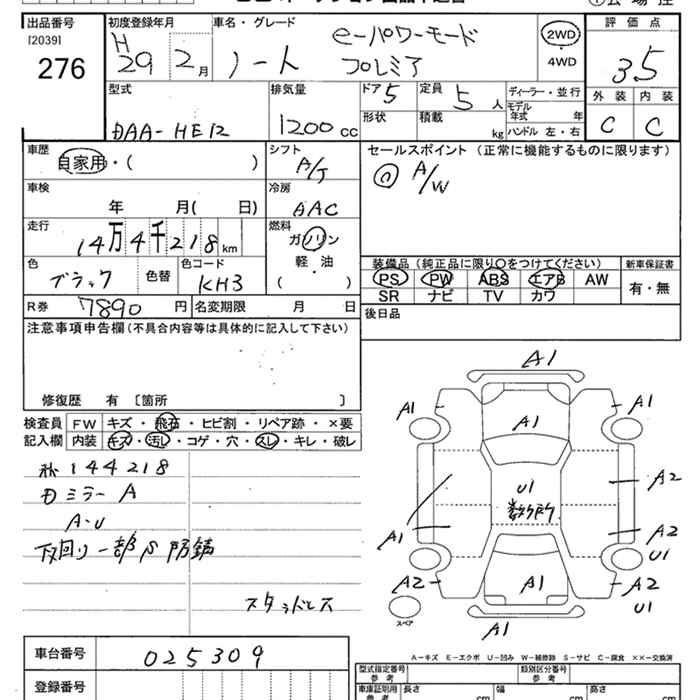 出品番号
[2039]
276
初度登録年月
H 29 2月
車名・グレード
e-パワーモード
ノート プレミア
2WD
4WD
評価点
3.5
外装 内装
C C
型式
DAA-HE12
排気量
1200 cc
ドア 5
定員 5人
形状
積載 kg
ディーラー・並行
モデル年式 年
ハンドル 左・右
車歴
自家用・( )
シフト
A/T
車検
年 月( 日)
冷房
AAC
走行
14万4千218km
燃料
ガソリン
軽・油
( )
色
ブラック
色替
色コード
KH3
R券 7890円
名変期限 月 日
セールスポイント (正常に機能するものに限ります)
A/W
装備品 (純正品に限り○をつけてください)
PS PW ABS エアB AW
SR ナビ TV カワ
新車保証書
有・無
後日品
注意事項申告欄 (不具合内容等は具体的に記入して下さい)
修復歴 有 〔箇所 〕
検査員
記入欄
FW キズ・飛石・ヒビ割・リペア跡・×要
内装 キズ・汚レ・コゲ・穴・スレ・キレ・破レ
144218
ミラー A
A・U
下回り一部S防錆
スタッドレス
A1
A1 A1 A1
U1
数ヶ所
A2
A1 A2
U1
A2 A1 A2
U1
スペア
A1
A−キズ E−エクボ U−凹み W−補修跡 S−サビ C−腐食 ××−交換済
車台番号
025309
登録番号
型式指定番号
参考
類別区分番号
参考
車庫証明用
参考
長さ cm
幅 cm
高さ cm